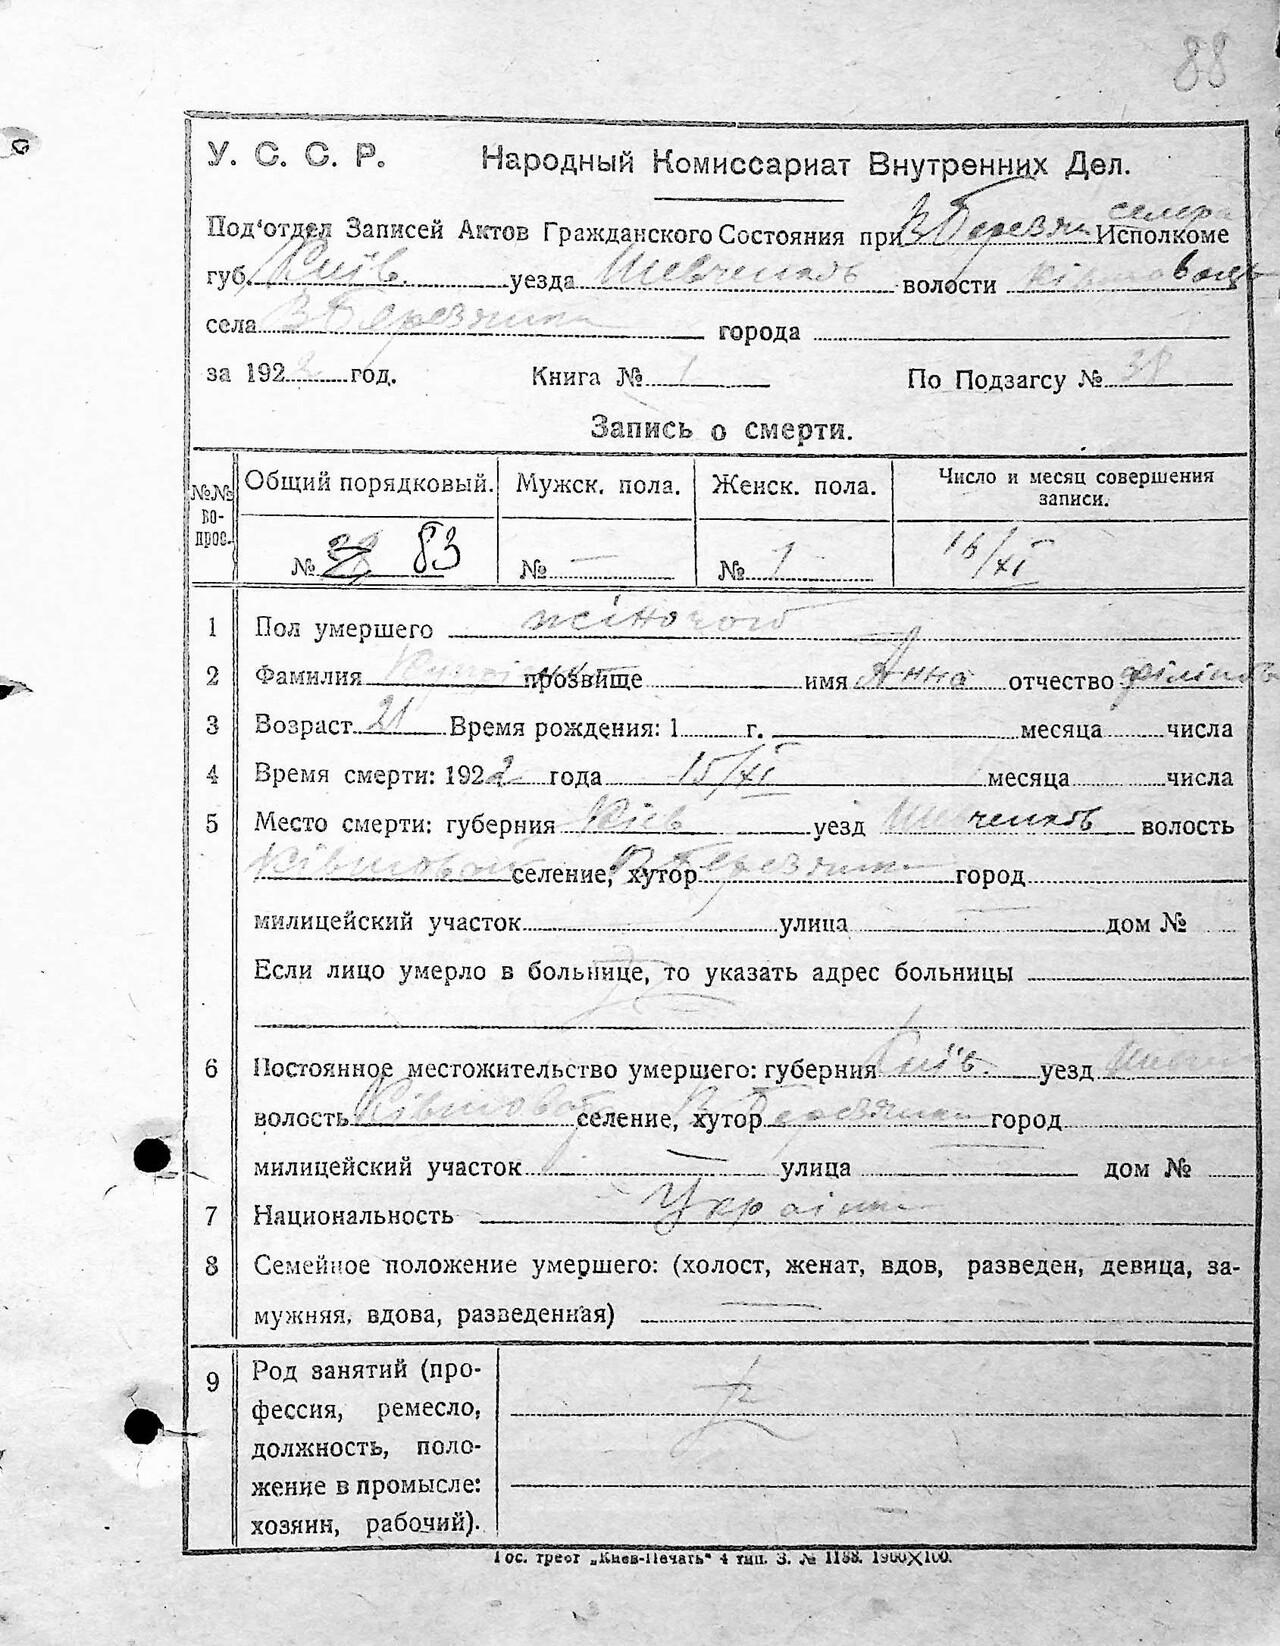 88
У. С. С. Р. Народный Комиссариат Внутренних Дел.
Под'отдел Записей Актов Гражданского Состояния при В Березян Исполкоме
губ. Київ. уезда Шевченков волости
села В Березянка города
за 1922 год. Книга № 1 По Подзагсу № 38
Запись о смерти.
№№ вопрос. Общий порядковый. Мужск. пола. Женск. пола. Число и месяц совершения записи.
№ 38 83 № — № 1 16/XI
1 Пол умершего жіночого
2 Фамилия прозвище имя Анна отчество
3 Возраст 21 Время рождения: 1 г. месяца числа
4 Время смерти: 1922 года 15/XI месяца числа
5 Место смерти: губерния Київ уезд Шевченков волость
селение, хутор В Березянка город
милицейский участок улица дом №
Если лицо умерло в больнице, то указать адрес больницы
6 Постоянное местожительство умершего: губерния Київ. уезд Шевч
волость селение, хутор В Березянка город
милицейский участок — улица дом №
7 Национальность
8 Семейное положение умершего: (холост, женат, вдов, разведен, девица, за-
мужняя, вдова, разведенная) —
9 Род занятий (про-
фессия, ремесло,
должность, поло-
жение в промысле:
хозяин, рабочий).
Гос. трест „Киев-Печать" 4 тип. З. № 1188. 1900X100.